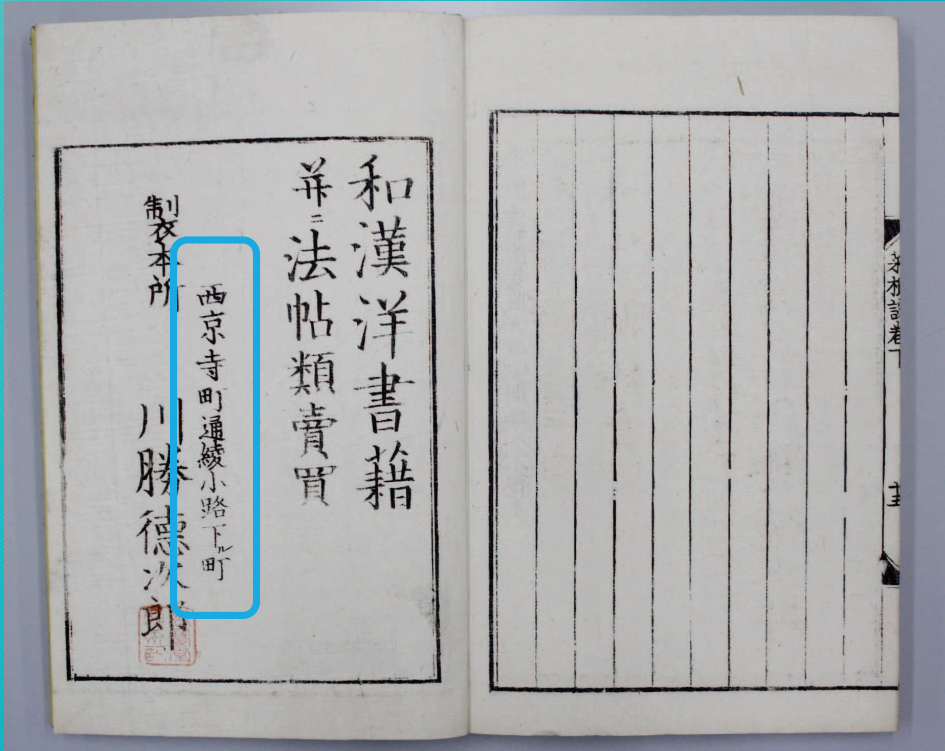 和漢洋書籍
并ニ法帖類賣買
西京寺町通綾小路下ル町
製本所 川勝德次郎